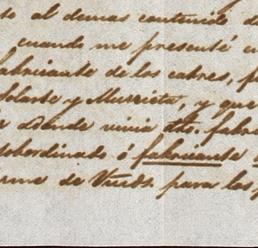 to al demas contenido d
cuando me presenté en
fabricante de los cabres, p
y Murrieta, y que
adonde vivia dho. fabri
subordinado ó fabricante
de Vuds. para los